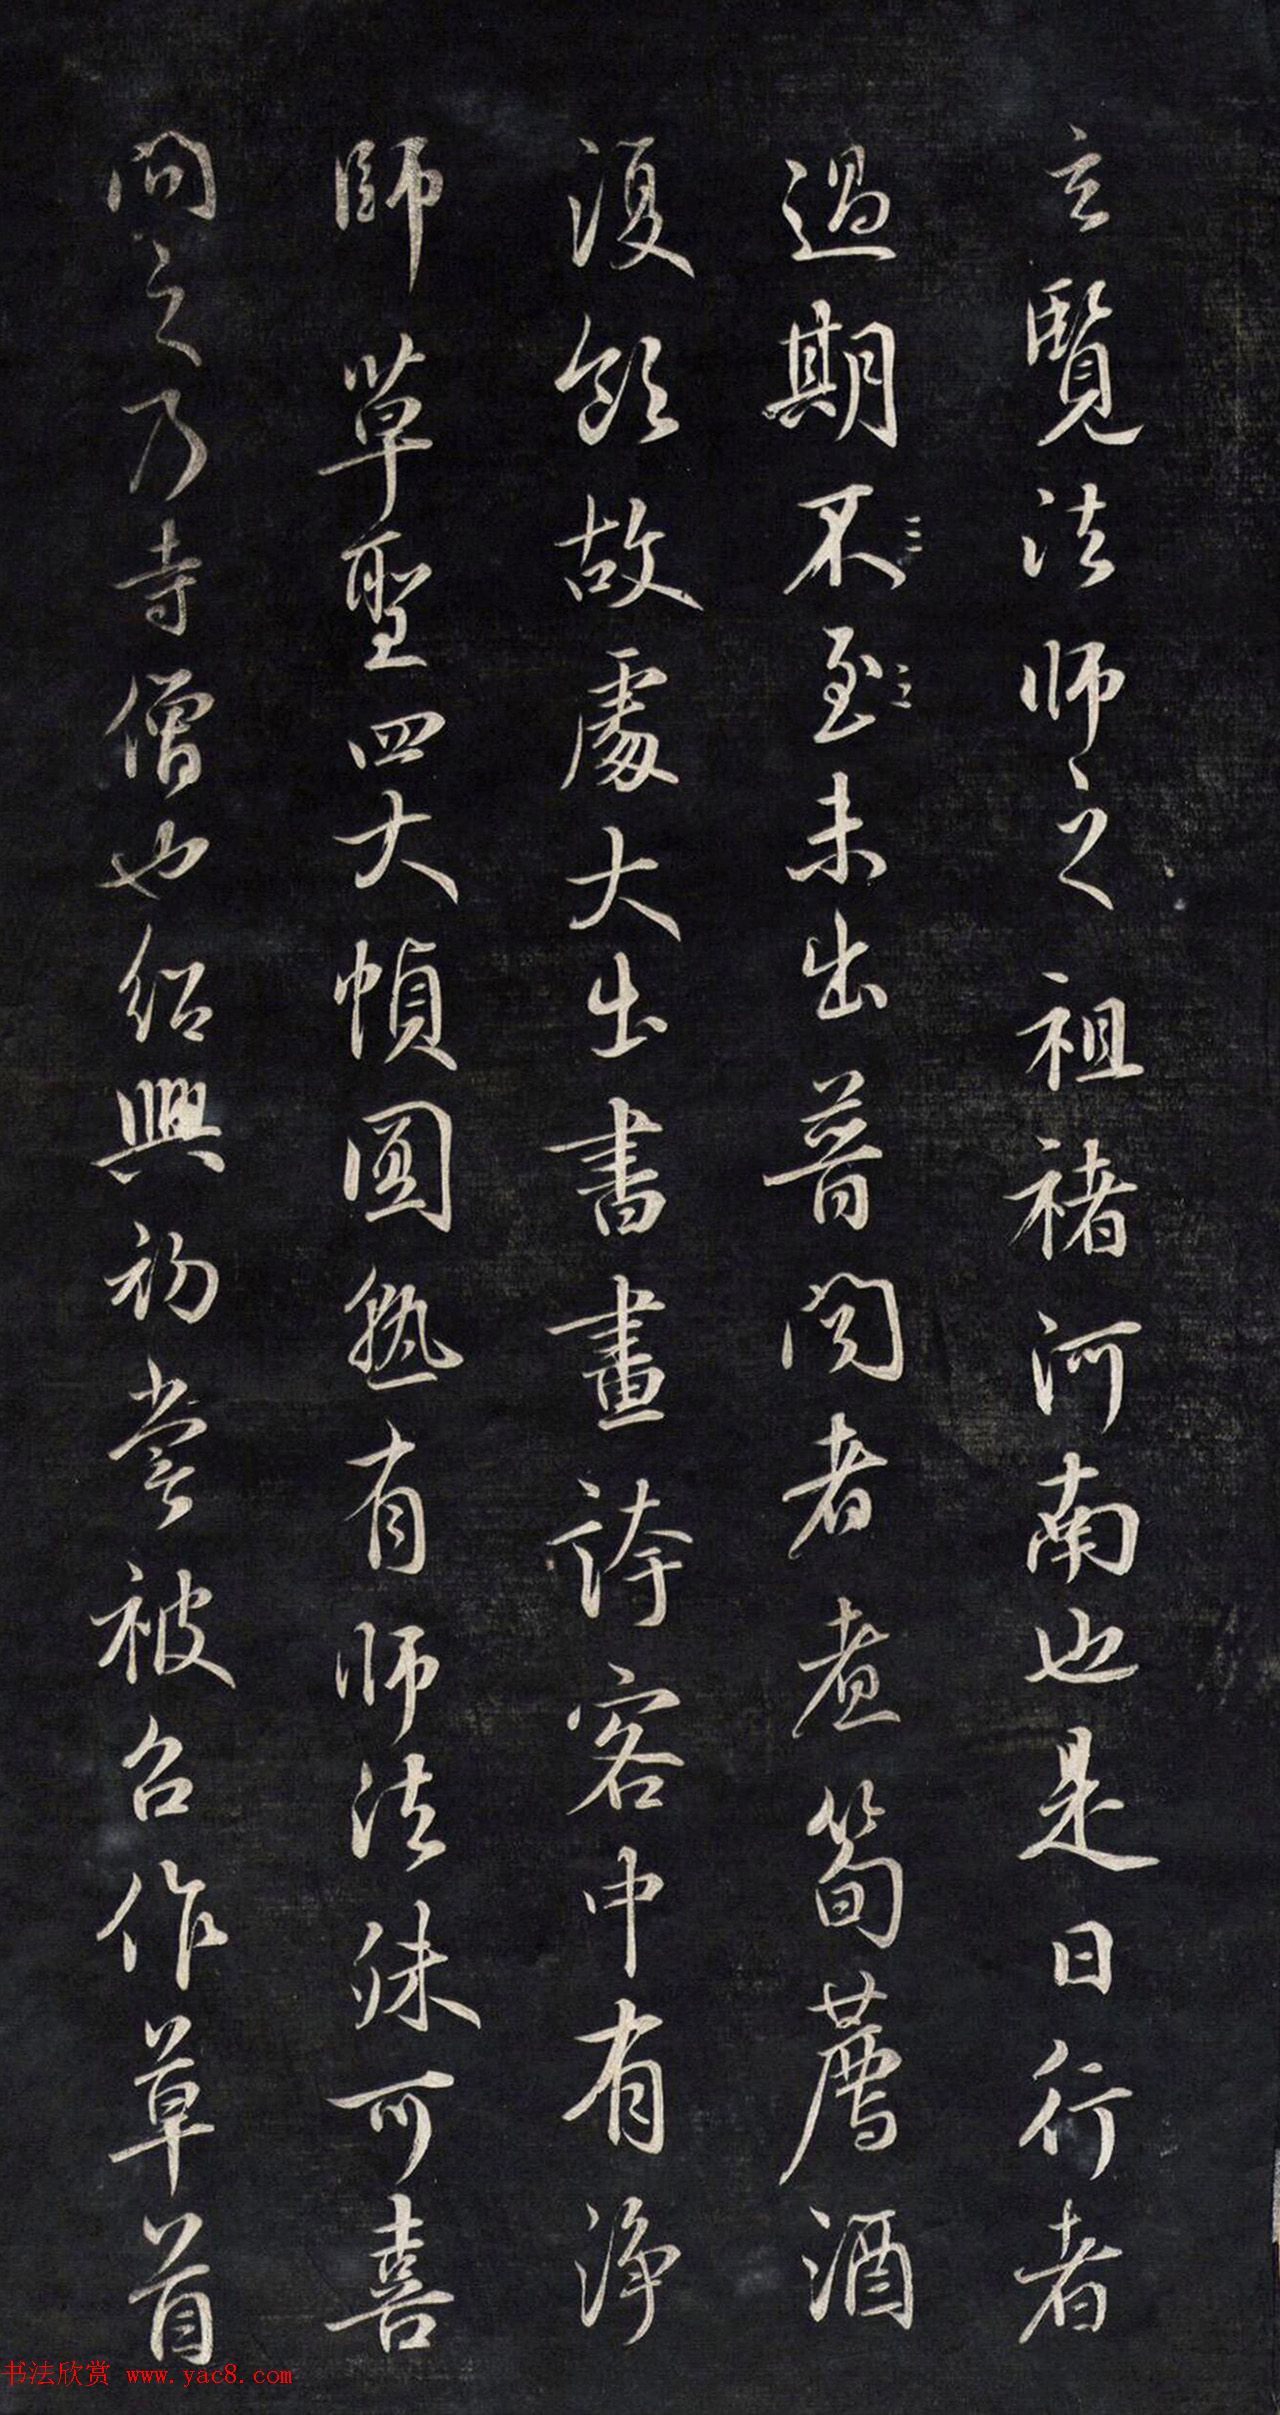 玄覽法師之祖褚河南也是日行者
過期不至未出普閲者煮筍薦酒
復飲故處大出書畫誇客中有淨
師草聖四大幀圓熟有師法殊可喜
問之乃寺僧也紹興初嘗被召作草首
书法欣赏 www.yac8.com